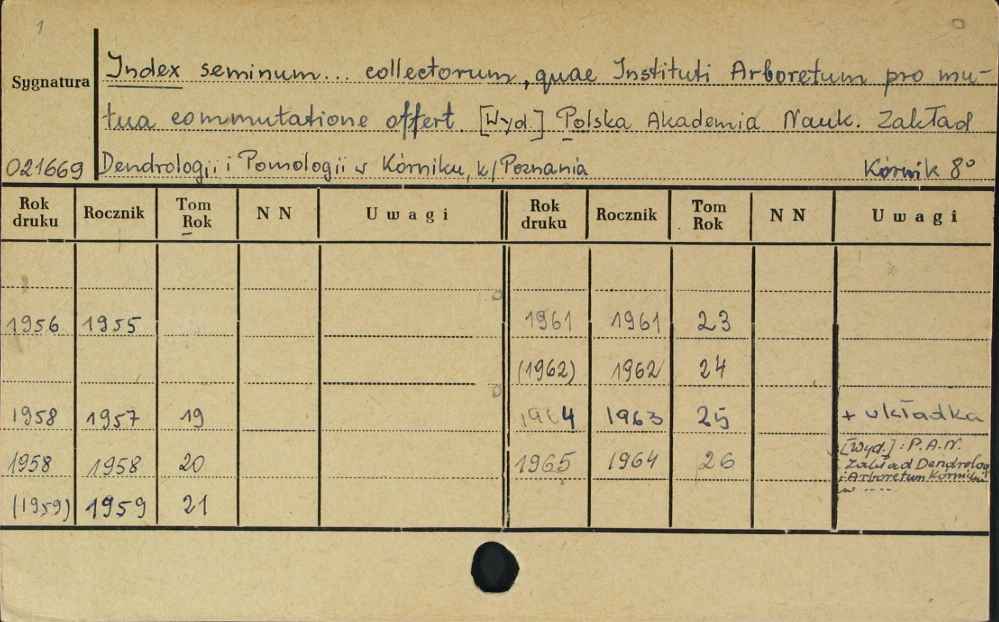 1
Sygnatura
Index seminum... collectorum, quae Instituti Arboretum pro mu-
tua commutatione offert. [Wyd.] Polska Akademia Nauk. Zakład
021669 Dendrologii i Pomologii w Kórniku, k/Poznania Kórnik 8°
Rok druku Rocznik Tom Rok N N Uwagi Rok druku Rocznik Tom Rok N N Uwagi
1956 1955 1961 1961 23
(1962) 1962 24
1958 1957 19 1964 1963 25 + wkładka
1958 1958 20 1965 1964 26 [Wyd.]: P.A.N.
Zakład Dendrolog
i Arboretum Kórnickie
w ....
(1959) 1959 21